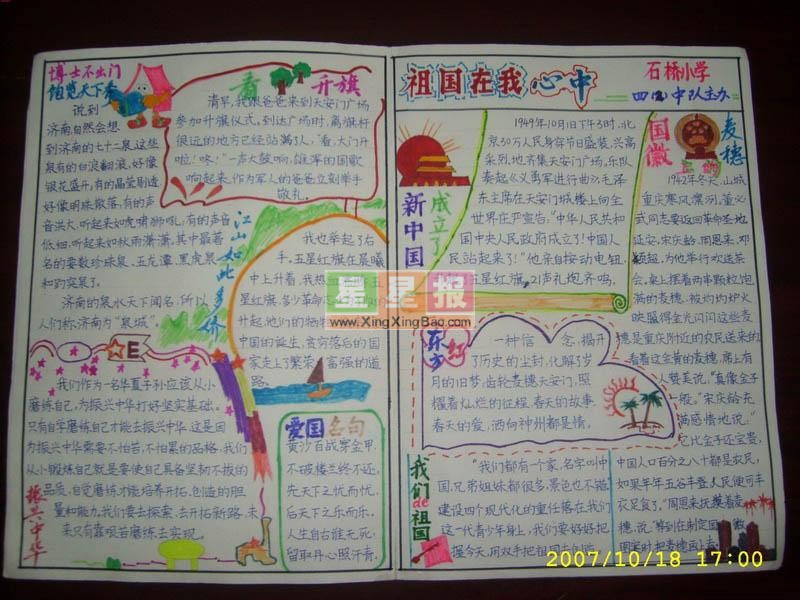 博士不出门
饱览天下奇
说到
济南自然会想
到济南的七十二泉,这些
泉有的白浪翻滚,好像
银花盛开,有的晶莹剔透
好像明珠散落,有的声
音洪大,听起来如虎啸狮吼,有的声音
低细,听起来如秋雨潇潇,其中最著
名的要数珍珠泉、五龙潭、黑虎泉
和趵突泉了。
济南的泉水天下闻名,所以
人们称济南为“泉城”。
看 升旗
清早,我跟爸爸来到天安门广场
参加升旗仪式,到达广场时,离旗杆
很远的地方已经站满了人,“看,大门开
啦!咚!”一声大鼓响,雄浑的国歌
响起来,作为军人的爸爸立刻举手
敬礼。
江山如此多娇
我也举起了右
手,五星红旗在晨曦
中上升着,我热
星红旗,多少革命
升起,他们的牺
中国的诞生,贫穷落后的国
家走上了繁荣 富强的道
路。
E
我们作为一名华夏子孙应该从小
磨练自己,为振兴中华打好坚实基础。
只有自学磨练自己才能去振兴中华,这是因
为振兴中华需要不怕苦、不怕累的品格,我们
从小锻炼自己就是要使自己具备坚韧不拔的
品质,自觉磨练才能培养开拓、创造的胆
量和能力,我们要去探索、去开拓新路,未
来只有靠艰苦磨练去实现。
振兴中华
爱国名句
黄沙百战穿金甲,
不破楼兰终不还,
先天下之忧而忧,
后天下之乐而乐,
人生自古谁无死,
留取丹心照汗青。
祖国在我心中
石桥小学
四(2)中队主办
新中国成立了
1949年10月1日下午3时,北
京30万人民身穿节日盛装,兴高
采烈地齐集天安门广场,乐队
奏起《义勇军进行曲》,毛泽
东主席在天安门城楼上向全
世界庄严宣告:“中华人民共和
国中央人民政府成立了!中国人
民站起来了!”他亲自按动电钮,
五星红旗,21声礼炮齐鸣。
国徽上的麦穗
1942年冬天,山城
重庆寒风凛冽,董必
武同志要返回革命圣地
延安,宋庆龄、周恩来、邓
颖超,为他举行欢送茶
会,桌上摆着两串颗粒饱
满的麦穗,被灼灼炉火
映照得金光闪闪这些麦
穗是重庆附近的农民送来的
看着这金黄的麦穗,席上有
人赞美说,“真像金子
一般。”宋庆龄充
满感情地说:“
它比金子还宝贵,
中国人口百分之八十都是农民,
如果年年五谷丰登,人民便可丰
衣足食了。”周恩来抚摸着麦
穗,说:“等到
东方红
一种信 念,揭开
了历史的尘封,化解了岁
月的旧梦,齿轮麦穗天安门,照
耀着灿烂的征程,春天的故事
春天的爱,洒向神州都是情。
我们de祖国
“我们都有一个家,名字叫中
国,兄弟姐妹都很多,景色也不错”
建设四个现代化的重任落在我们
这一代青少年身上,我们要好好把
握今天,用双手把祖国
星星报
www.XingXingBao.com
2007/10/18 17:00